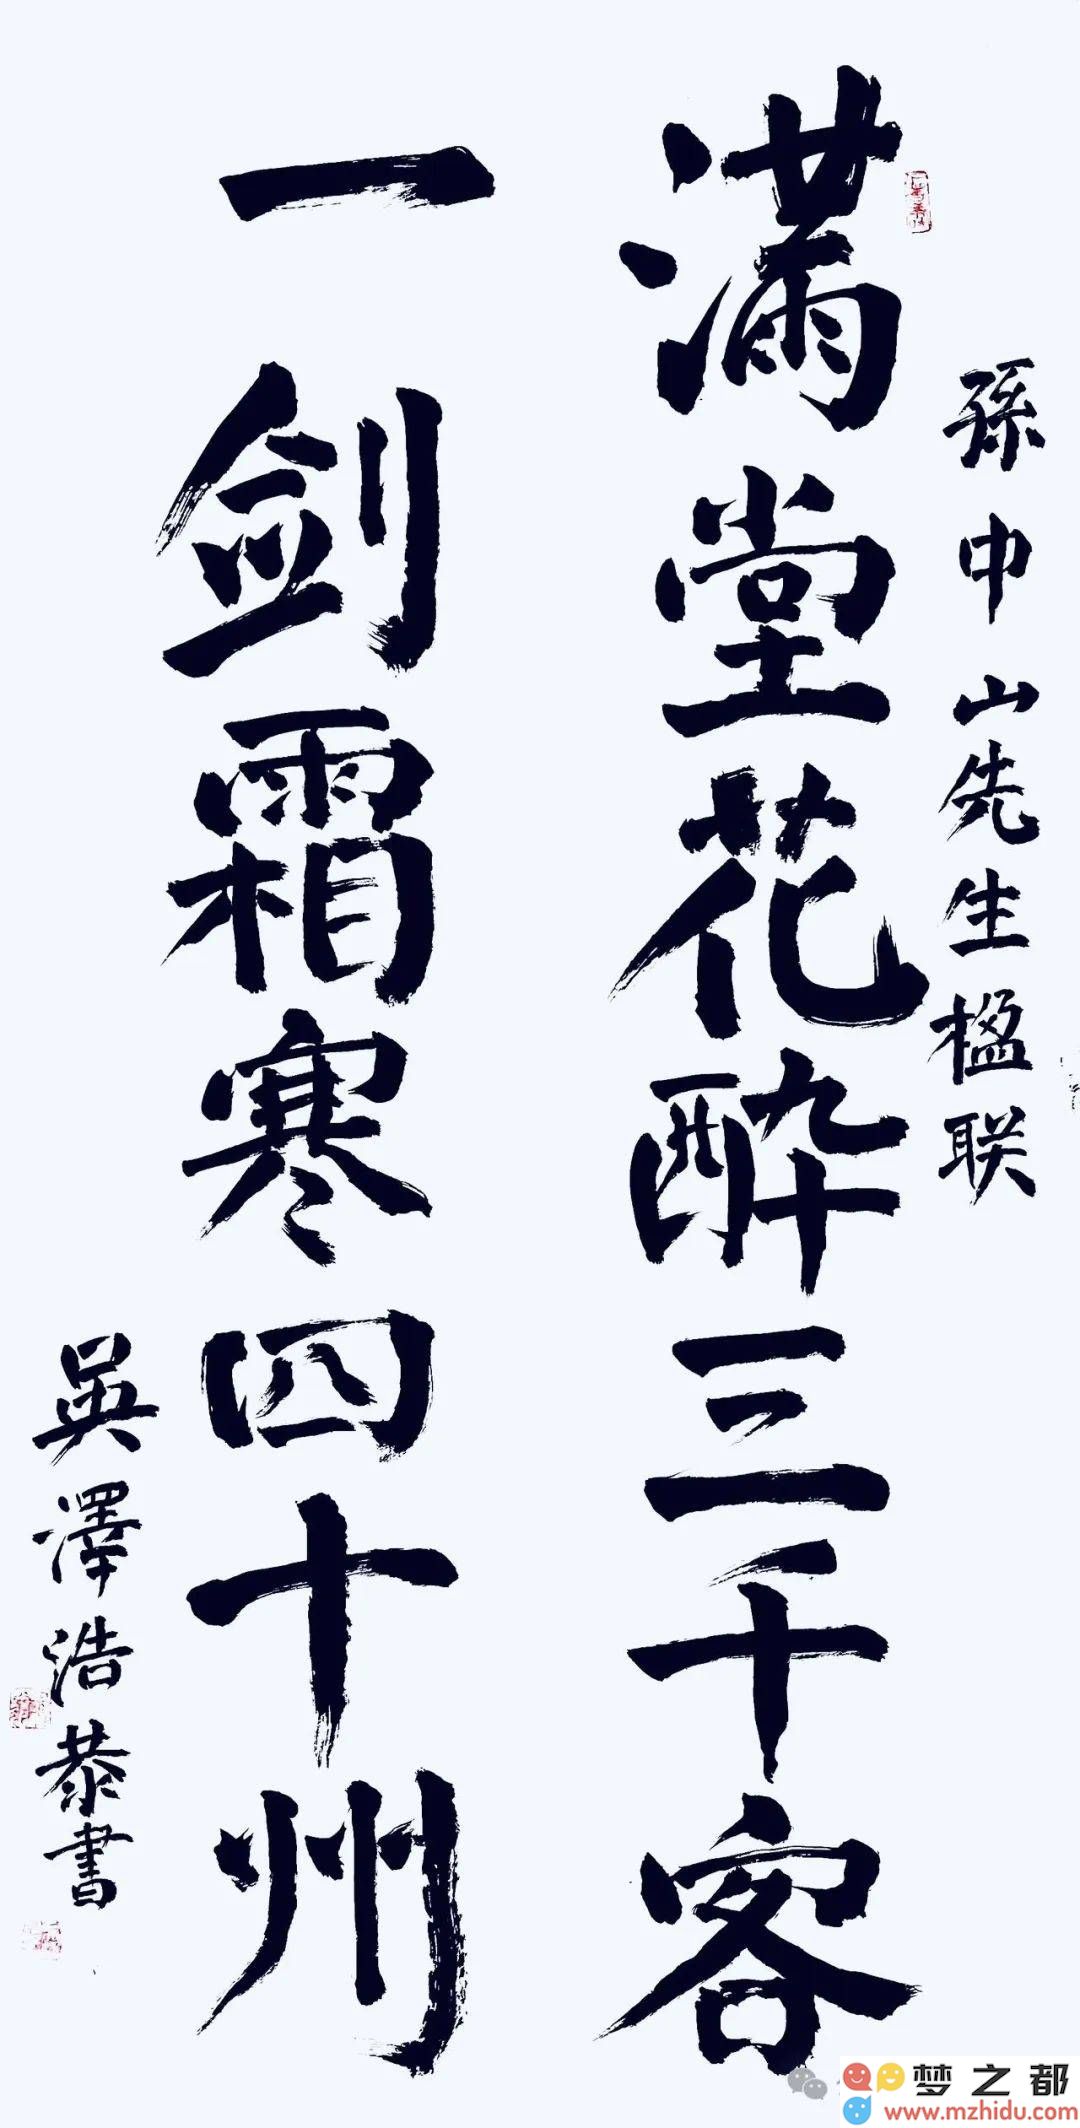 孫中山先生楹联
满堂花醉三千客
一剑霜寒四十州
吴澤浩恭書
梦之都
www.mzhidu.com